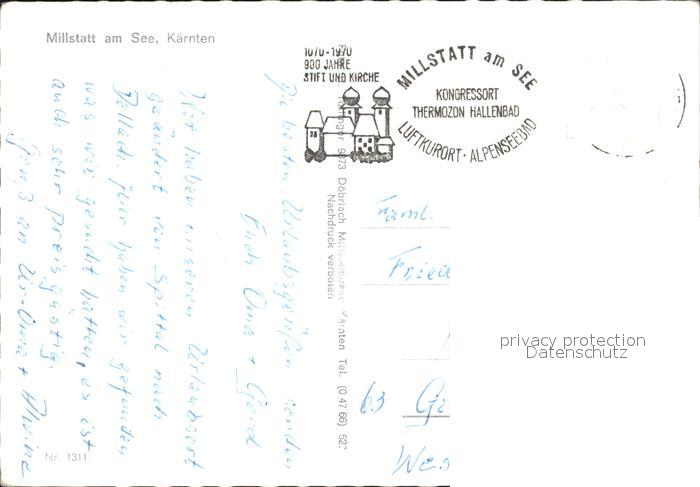 Millstatt am See, Kärnten
1070-1970
900 JAHRE
STIFT UND KIRCHE
MILLSTATT am SEE
KONGRESSORT
THERMOZON HALLENBAD
LUFTKURORT · ALPENSEEBAD
Die besten Urlaubsgrüße senden
Euch Oma + Gerd
Wir haben unseren Urlaubsort
geändert von Spittal nach
Dellach, hier haben wir gefunden
was wir gesucht hatten, es ist
auch sehr preisgünstig.
Gruß an Ur-Oma +
9873 Döbriach Kärnten Tel. (0 47 66) 52
Nachdruck verboten
Faml.
Frie
63 Gi
Wes
privacy protection
Datenschutz
Nr. 1311